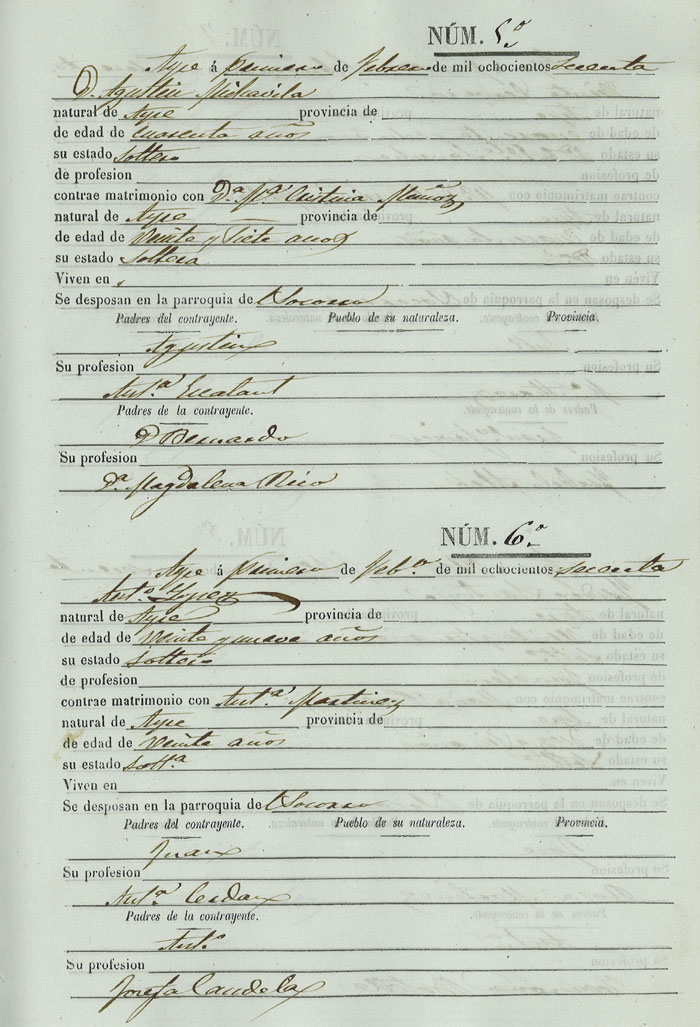 NÚM. 5º
Aspe á primero de Febrero de mil ochocientos sesenta
D. Agustin Miravila
natural de Aspe provincia de
de edad de cuarenta años
su estado soltero
de profesion
contrae matrimonio con Dª Mª Cristina Muñoz
natural de Aspe provincia de
de edad de veinte y siete años
su estado soltera
Viven en
Se desposan en la parroquia de el Socorro
Padres del contrayente. Pueblo de su naturaleza. Provincia.
Agustin
Su profesion
Antª Escalant
Padres de la contrayente.
D Bernardo
Su profesion
Dª Magdalena Rico
NÚM. 6º
Aspe á primero de Febº de mil ochocientos sesenta
Antº Lopez
natural de Aspe provincia de
de edad de veinte y nueve años
su estado soltero
de profesion
contrae matrimonio con Antª Martinez
natural de Aspe provincia de
de edad de veinte años
su estado soltª
Viven en
Se desposan en la parroquia de el Socorro
Padres del contrayente. Pueblo de su naturaleza. Provincia.
Juan
Su profesion
Antª Cerdan
Padres de la contrayente.
Antº
Su profesion
Josefa Candela